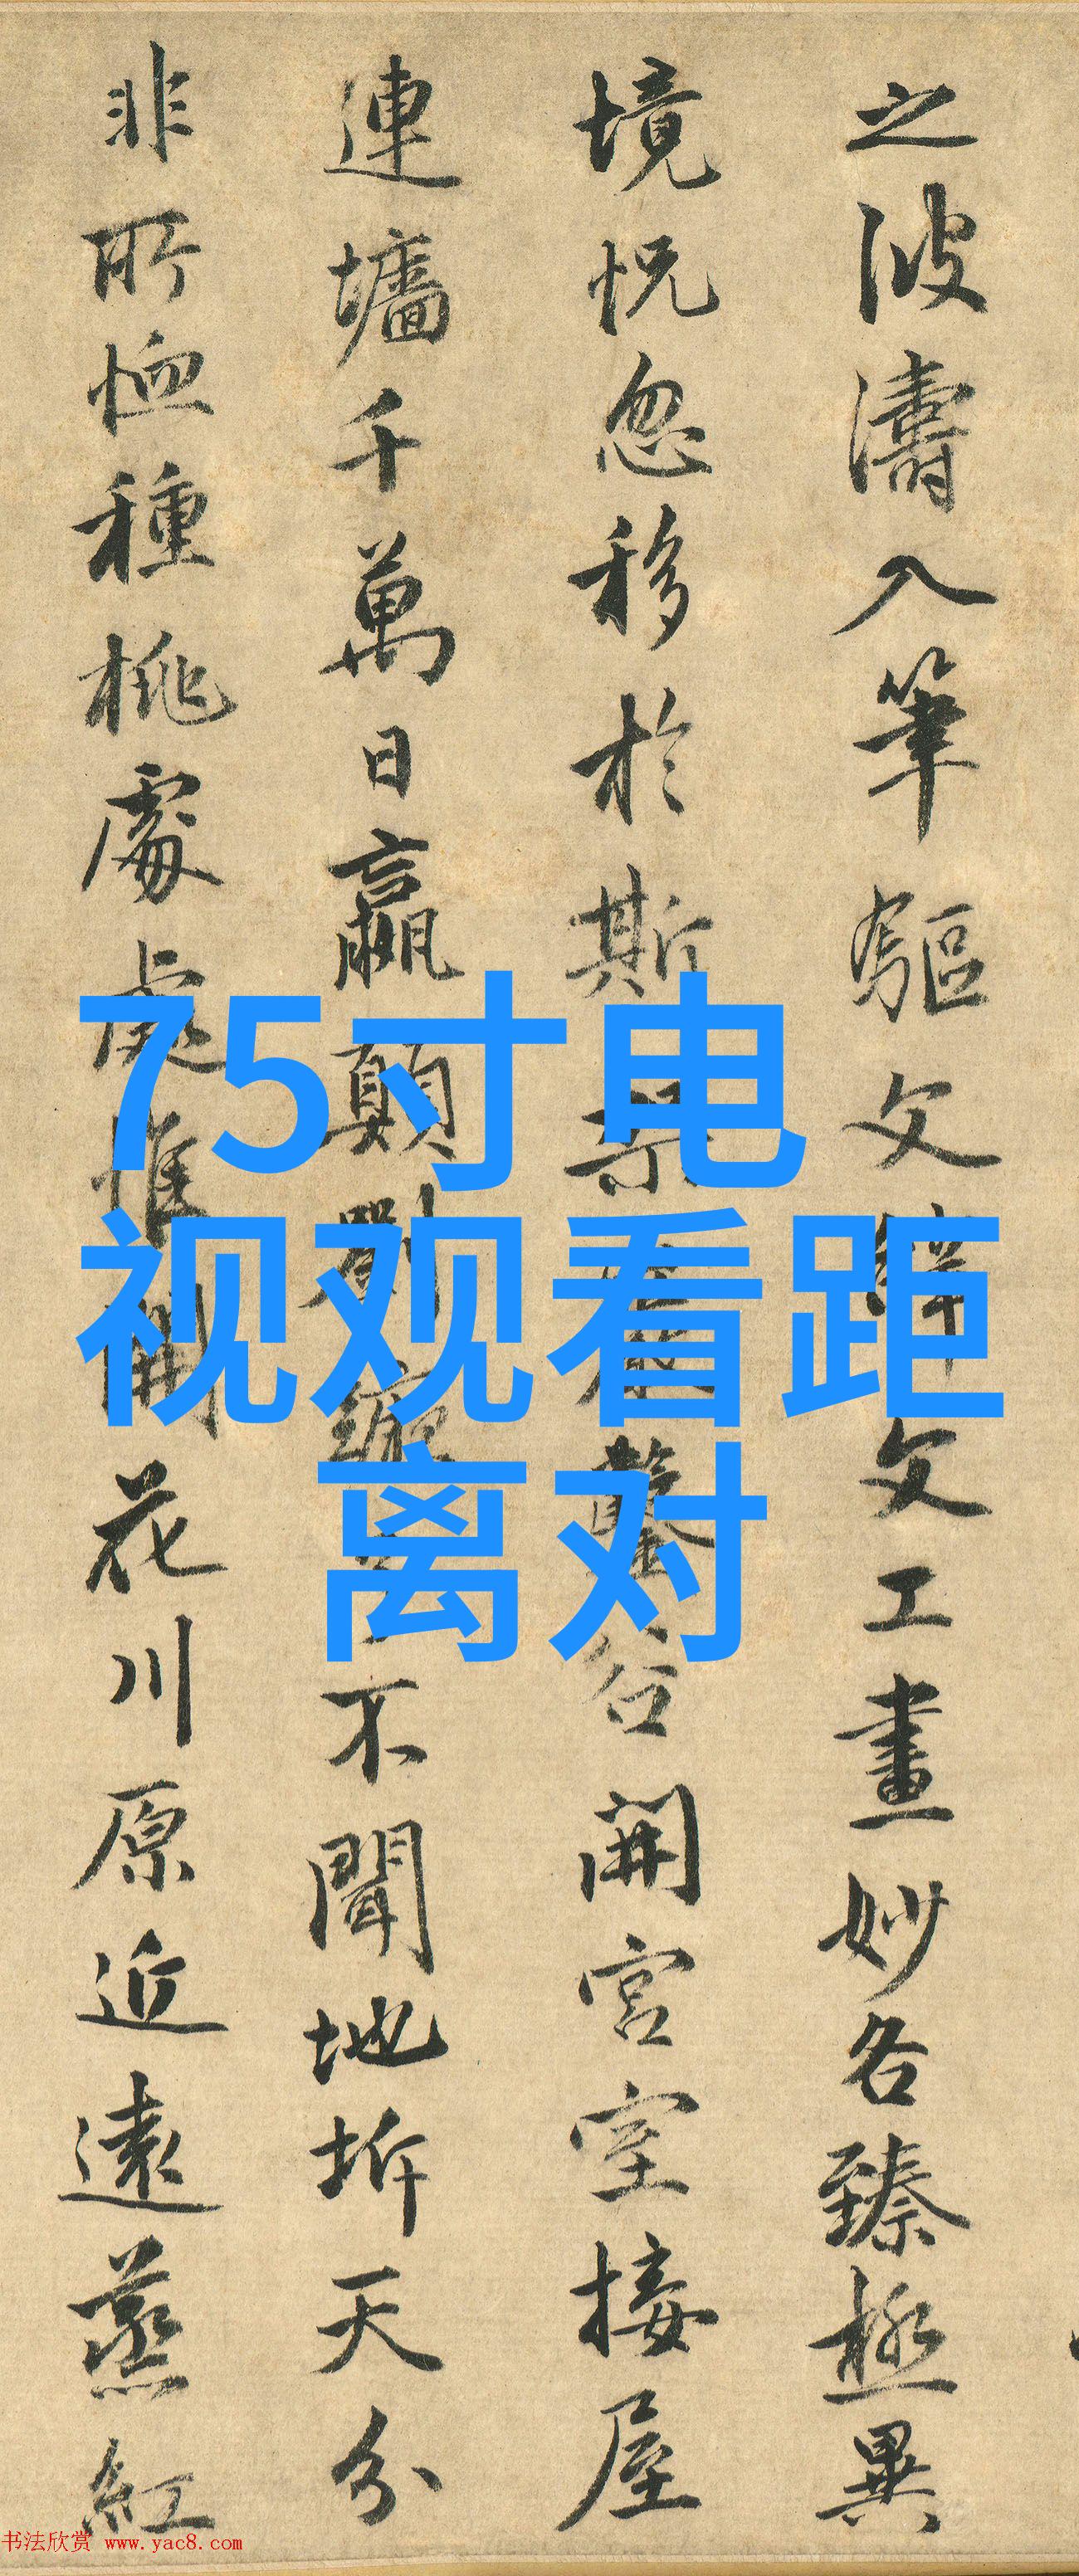 之波濤入筆驅文文工畫妙各臻極異
境怳忽移於斯鑿谷開宮室接屋
連墻千萬日嬴顛劉不聞地坼天分
非所恤種桃處處惟開花川原近遠蒸紅
75寸电
视观看距
离对
书法欣赏 www.yac8.com